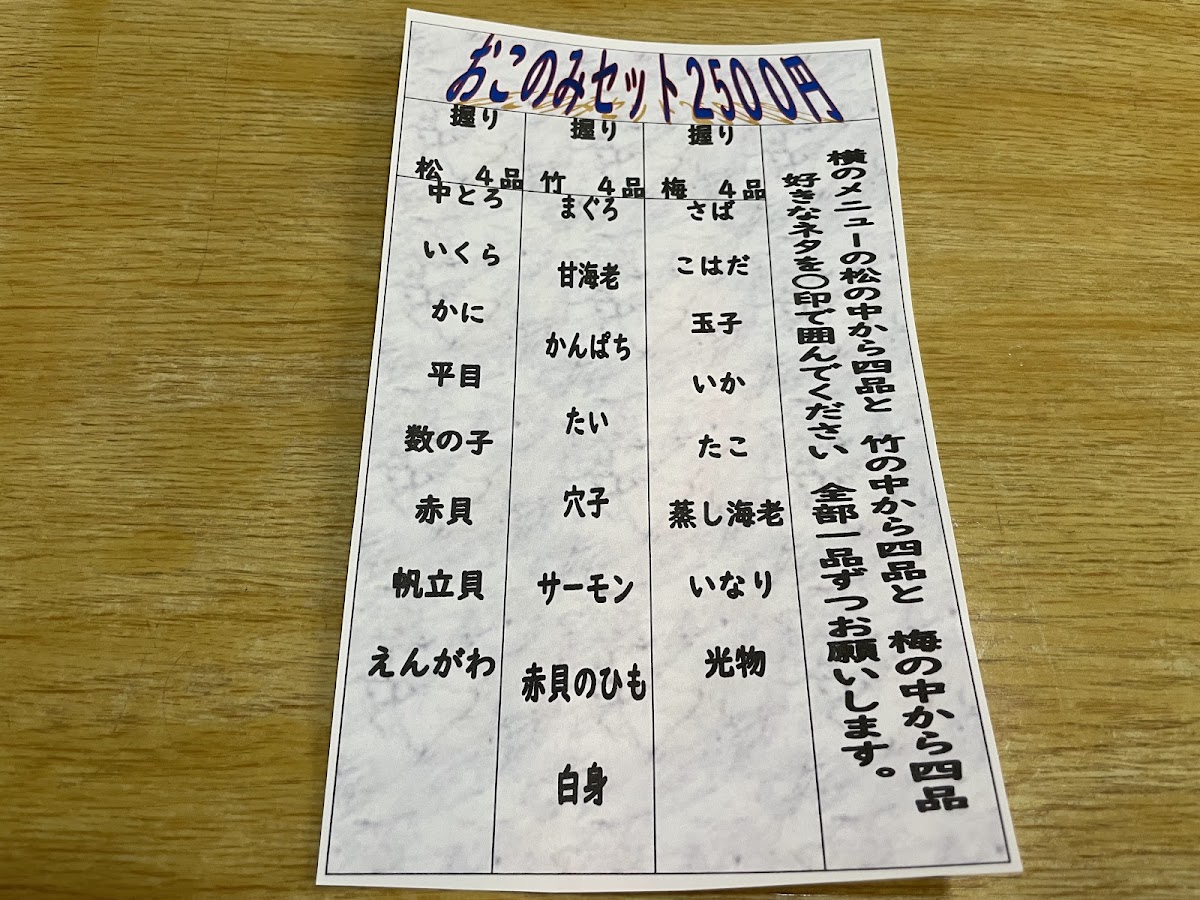 おこのみセット2500円
握り
松 4品
中とろ
いくら
かに
平目
数の子
赤貝
帆立貝
えんがわ
握り
竹 4品
まぐろ
甘海老
かんぱち
たい
穴子
サーモン
赤貝のひも
白身
握り
梅 4品
さば
こはだ
玉子
いか
たこ
蒸し海老
いなり
光物
横のメニューの松の中から四品と 竹の中から四品と 梅の中から四品
好きなネタを〇印で囲んでください 全部一品ずつお願いします。